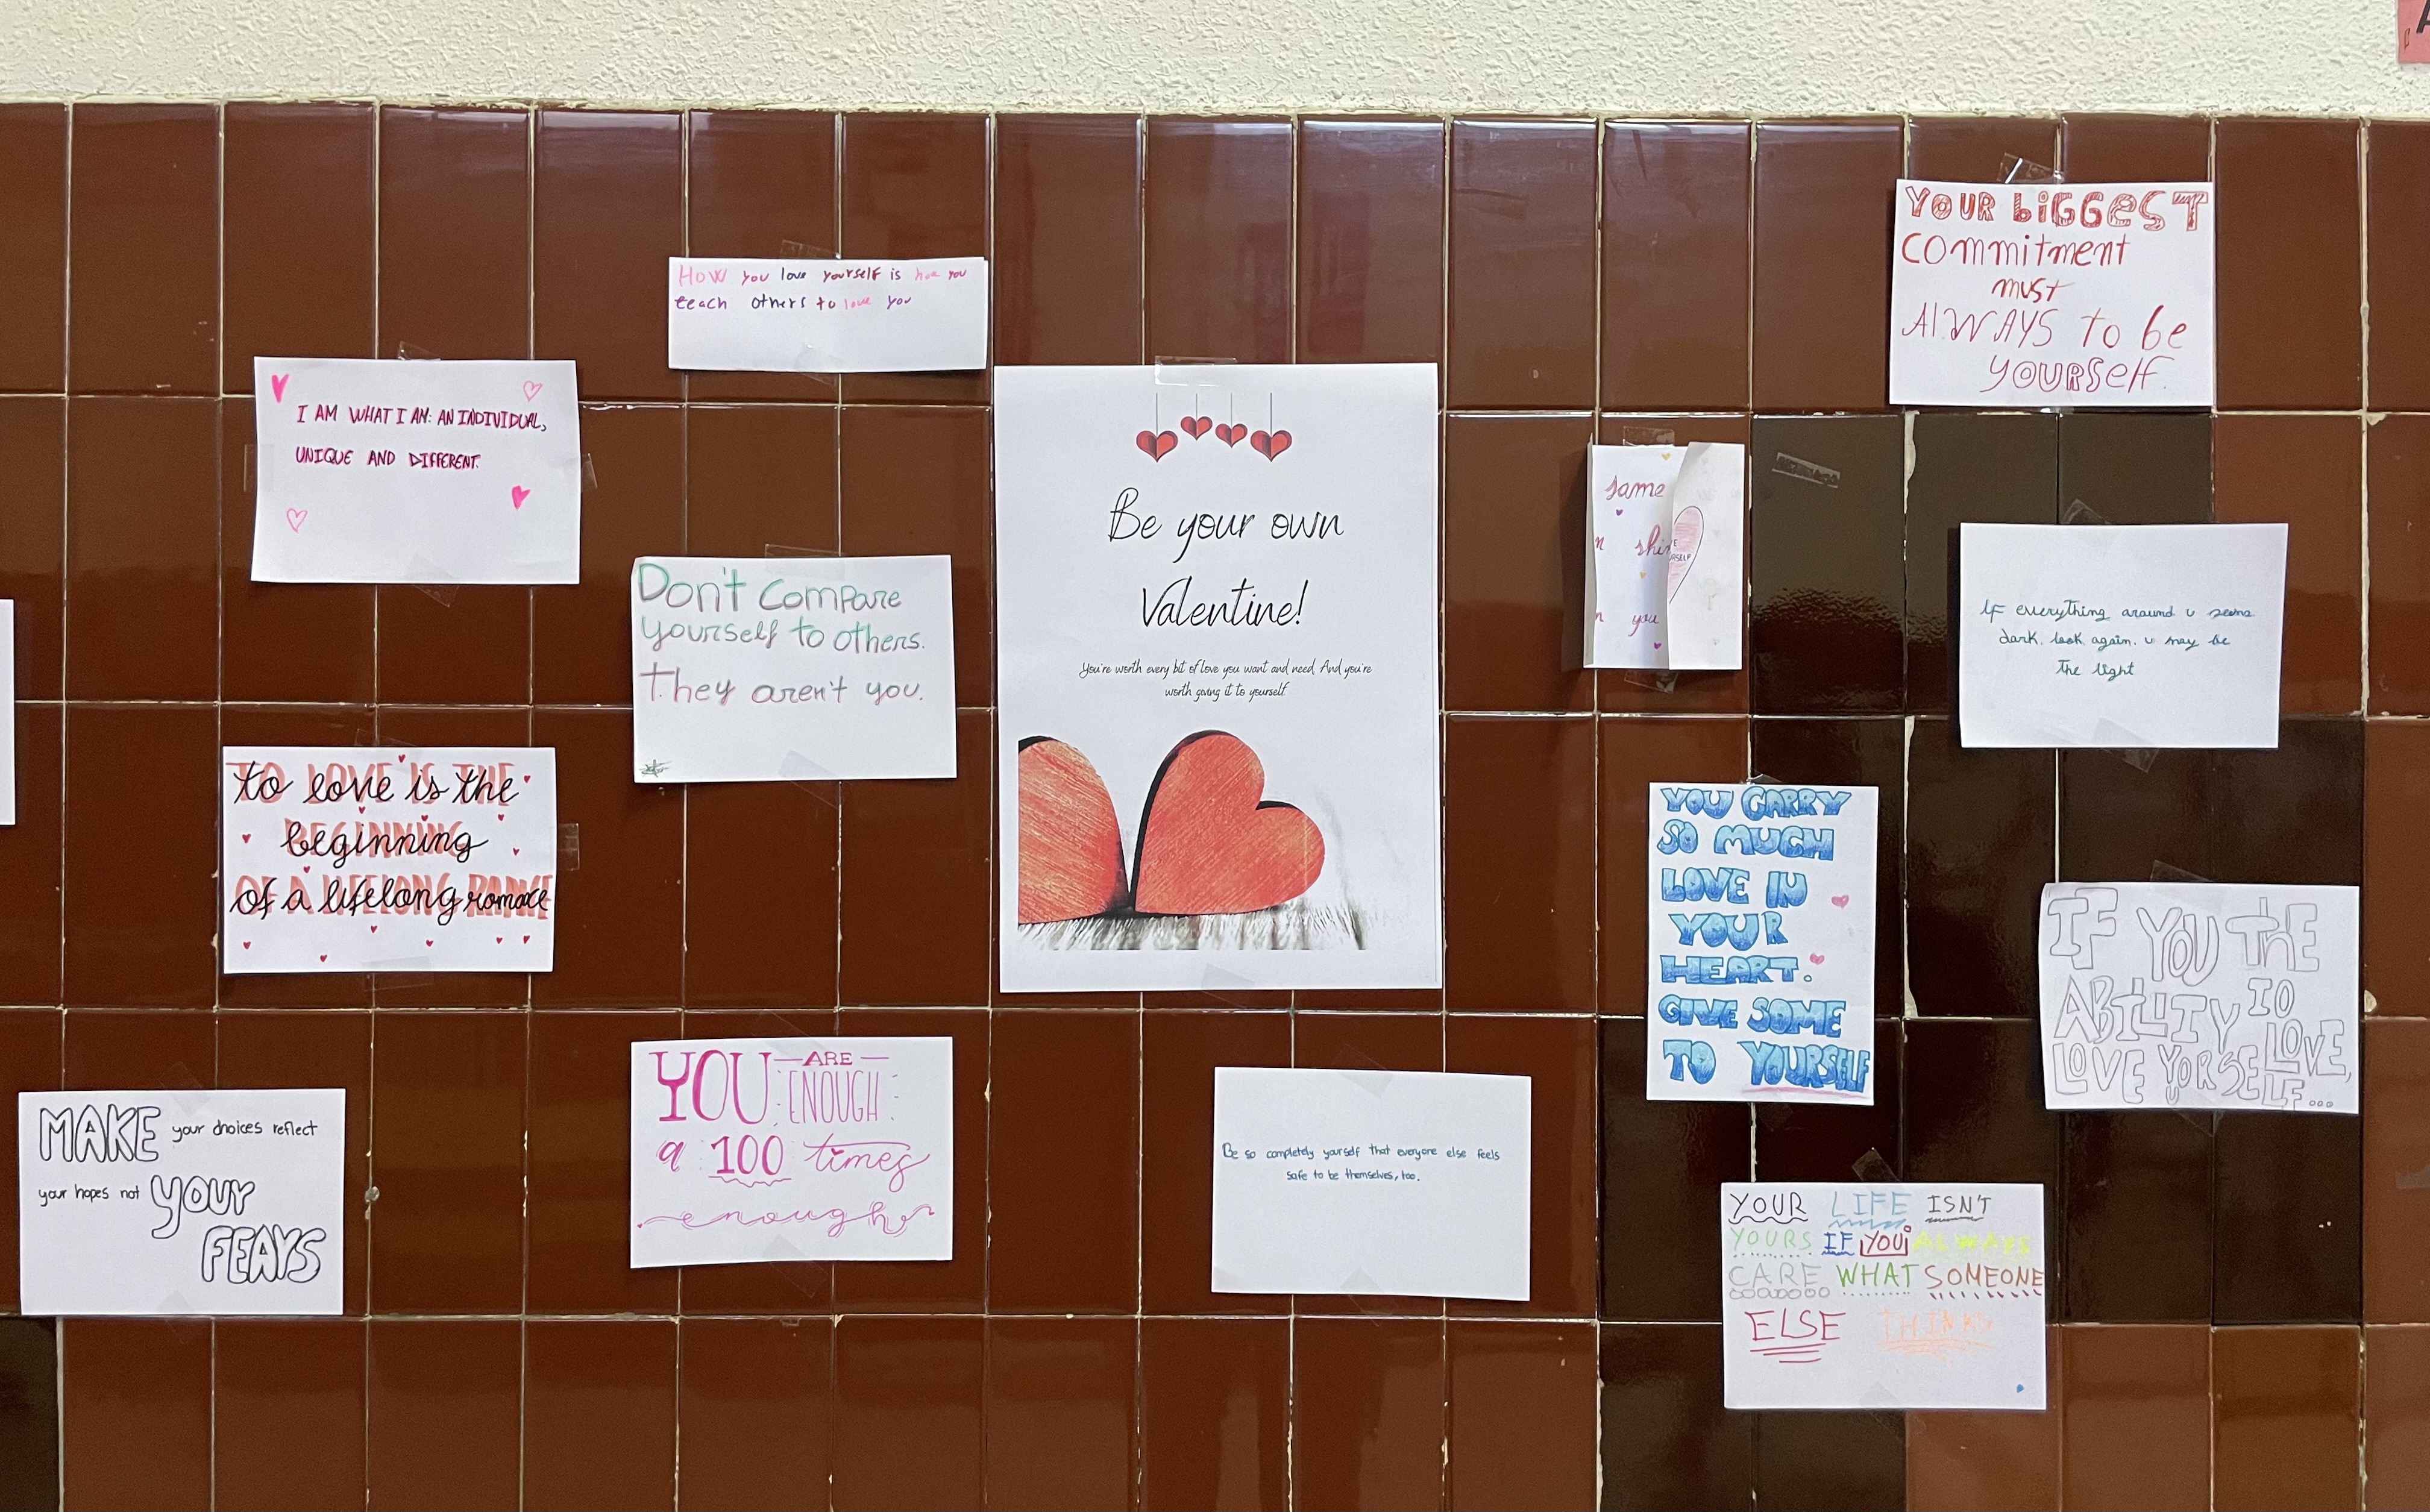 How you love yourself is how you
teach others to love you
I AM WHAT I AM: AN INDIVIDUAL,
UNIQUE AND DIFFERENT.
Don't compare
yourself to others.
They aren't you.
to love is the
beginning
of a lifelong romance
MAKE your choices reflect
your hopes not your
FEARS
YOU ARE
ENOUGH
a 100 times
enough
Be your own
Valentine!
You're worth every bit of love you want and need. And you're
worth giving it to yourself.
Be so completely yourself that everyone else feels
safe to be themselves, too.
YOUR biGGesT
commitment
must
AlWAYS to be
YOURSelf.
same
you
If everything around u seems
dark. look again. u may be
the light
YOU CARRY
SO MUCH
LOVE IN
YOUR
HEART.
GIVE SOME
TO YOURSELF
IF YOU THE
ABILITY TO
LOVE,
LOVE YORSELF...
YOUR LIFE ISN'T
YOURS IF YOU ALWAYS
CARE WHAT SOMEONE
ELSE THINKS